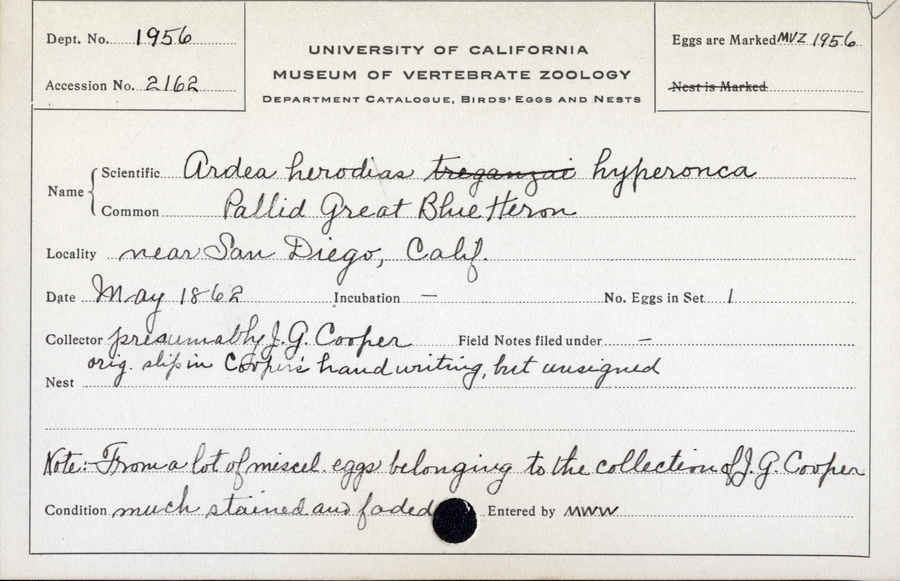 Dept. No. 1956
Accession No. 2162
UNIVERSITY OF CALIFORNIA
MUSEUM OF VERTEBRATE ZOOLOGY
DEPARTMENT CATALOGUE, BIRDS' EGGS AND NESTS
Eggs are Marked MVZ 1956
Nest is Marked
Name
Scientific Ardea herodias treganzai hyperonca
Common Pallid Great Blue Heron
Locality near San Diego, Calif.
Date May 1862 Incubation — No. Eggs in Set 1
Collector presumably J. G. Cooper Field Notes filed under —
orig. slip in Cooper's handwriting, but unsigned
Nest
Note:- From a lot of miscel. eggs belonging to the collection of J. G. Cooper
Condition much stained and faded Entered by MWW